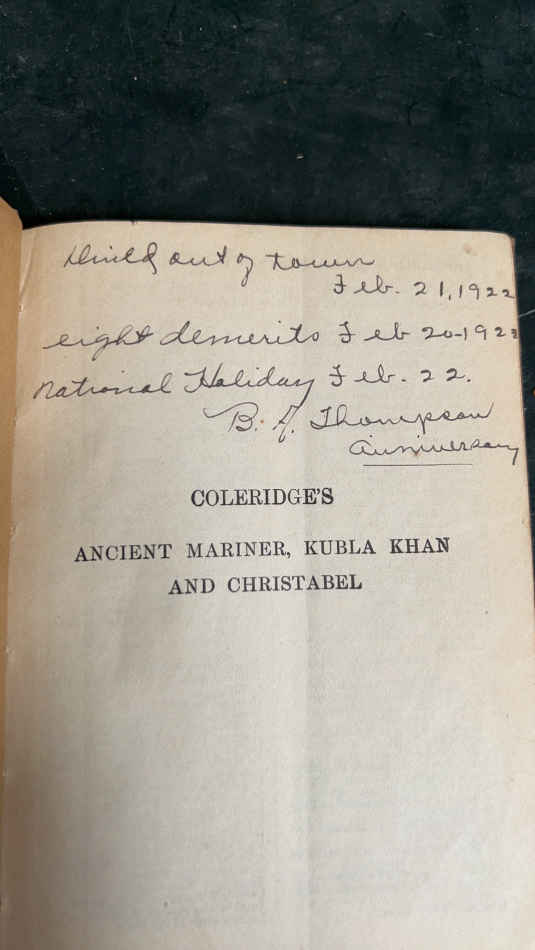 out of town
Feb. 21, 1922
eight demerits Feb 20-192
National Holiday Feb. 22.
B. A. Thompson
Anniversary
COLERIDGE'S
ANCIENT MARINER, KUBLA KHAN
AND CHRISTABEL